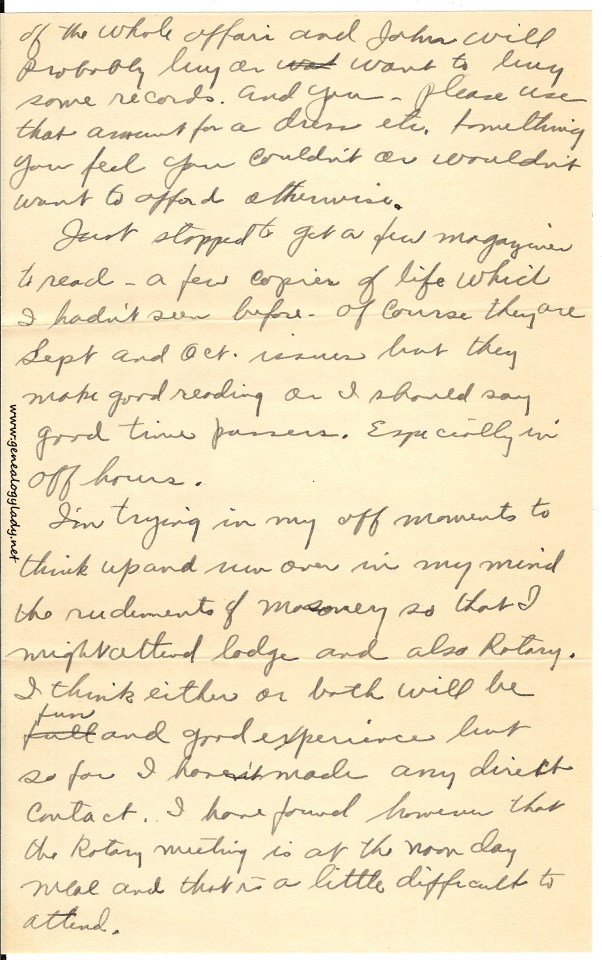 of the whole affair and John will
probably buy or want to buy
some records. And you - please use
that amount for a dress etc. Something
you feel you couldn't or wouldn't
want to afford otherwise.
Just stopped to get a few magazines
to read - a few copies of life which
I hadn't seen before - of course they are
Sept and Oct. issues but they
make good reading or I should say
good time passers. Especially in
off hours.
I'm trying in my off moments to
think up and run over in my mind
the rudiments of masonery so that I
might attend lodge and also Rotary.
I think either or both will be
fun
full and good experience but
so far I haven't made any direct
contact. I have found however that
the Rotary meeting is at the noon day
meal and that is a little difficult to
attend.
www.genealogylady.net